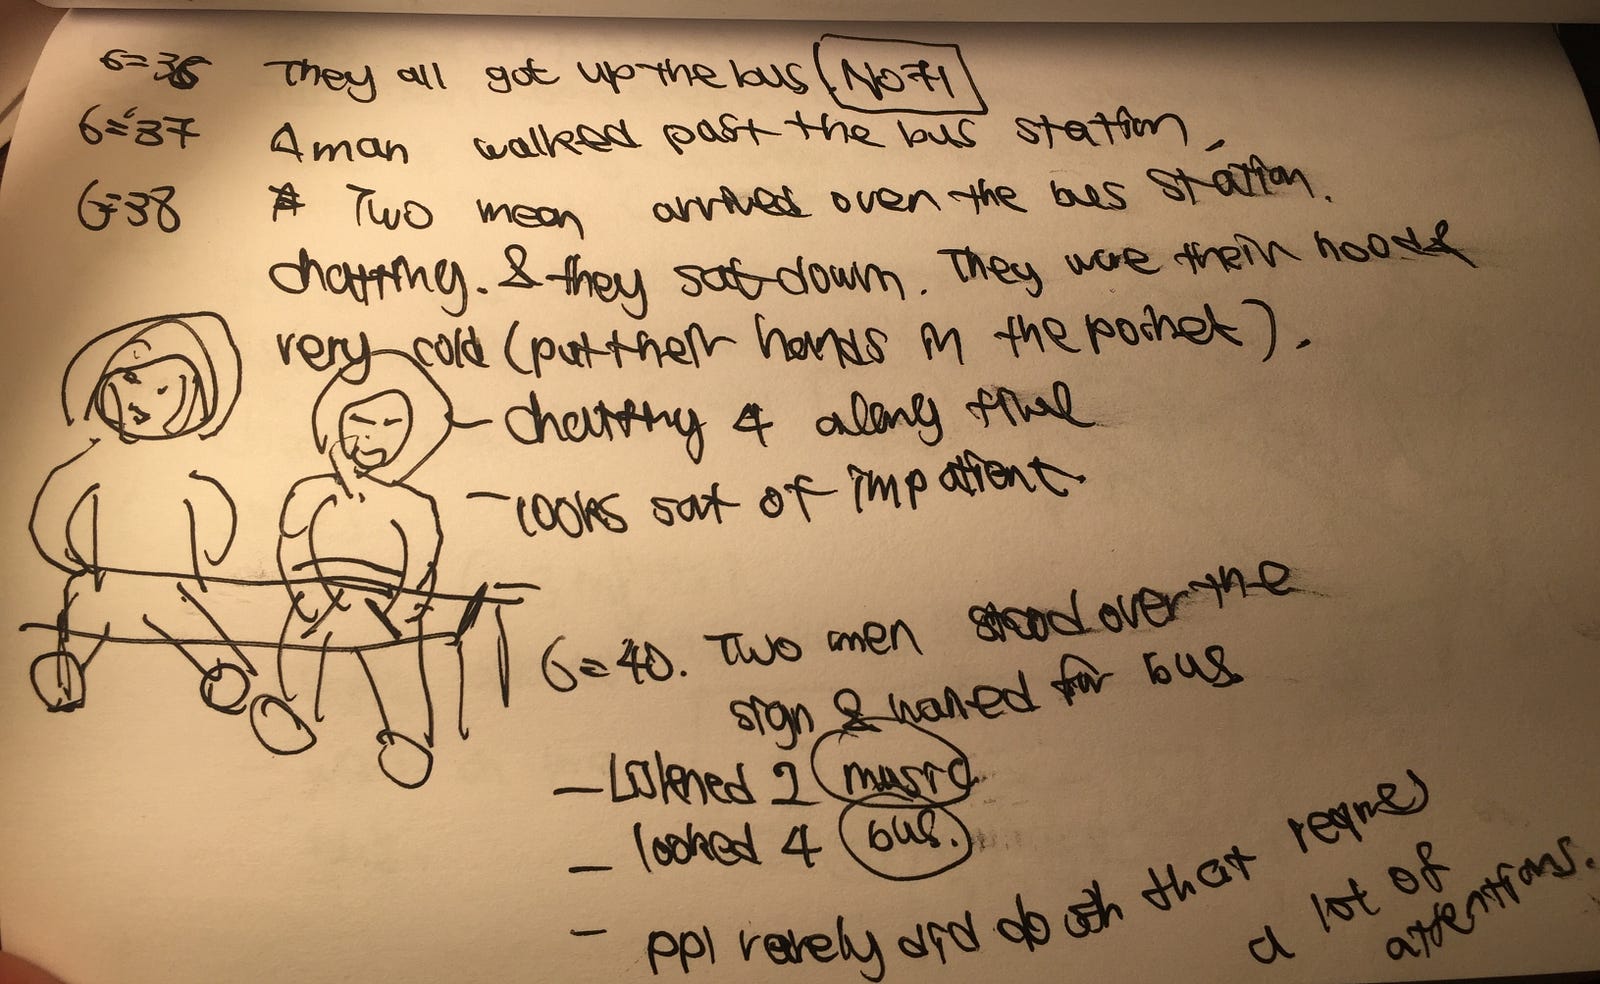 6=36 They all got up the bus (NO71
6=37 A man walked past the bus station.
6=38 Two mean arrived over the bus station.
chatting. & they sat down. They wore their hoods
very cold (put their hands in the pocket).
- chatting 4 a long time
- looks sort of impatient.
6=40. Two men stood over the
sign & waited for bus
- Listened 2 music
- looked 4 bus.
- ppl rarely did do sth that requires
a lot of
attentions.